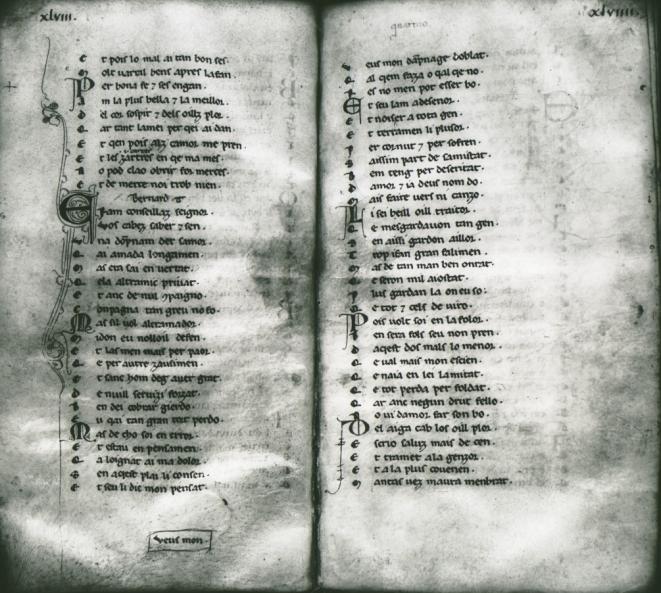 xlviii.
E t pois lo mal ai tan bon ses.
M olt uartal bens apres lafan.
P er bona fe 7 ses engan.
A m la plus bella 7 la meillor.
D el cor sospir 7 dels oillz plor.
C ar tant lamei per qei ai dan.
E t qen pois alz camor me pren
E t les en qe ma mes.
N o pod clao obrir for merces.
E t de merce noi trob nien.
Bernard
E ram conseillaz seignor.
V os cabez saber 7 sen.
V na dopnam det samor.
Q ai amada longamen.
M as era sai en uertat.
Q ela altramic priuat.
E t anc de nul
C onpagna tan greu no fo.
M as sil uol altramador.
M idon eu nolloil defen.
E t las men mais per paor.
Q e per autre zausimen.
E t sanc hom deg auer grat.
D e nuill seruizi forzat.
B en dei cobrar gierdo.
E u qi tan gran tort perdo.
M as de cho soi en error.
E t estau en pensamen.
Q a loignat ai ma dolor.
S en aqest plai li consen.
E t seu li dic mon pensat.
veus mon.
xlviiii.
V eus mon dapnage doblat.
Q al qem faza o qal qe no.
R es no men pot esser bo.
E t seu lam a desenor.
E t noiser a tota gen.
E t terramen li plusor.
P er cornut 7 per sofren.
P aissim part de samistat.
B em teng per deseritat.
D amor 7 ia deus nom do
M ais faire uers ni canzo.
L i sei beill oill traitor.
Q e mesgardauon tan gen.
S en aissi gardon aillor.
T rop ifan gran falimen.
M as de tan man ben onrat.
Q e seron mil aiostat.
P lus gardan la on eu so.
Q e tot 7 cels de uiro.
P ois uolt soi en la folor.
B en sera fols seu non pren.
D aqest dos mals lo menor.
Q e ual mais mon escien.
Q e naia en lei lamitat.
Q e tot perda per foldat.
C ar anc negun drut fello
N o ui damor far son bo.
D el aiga cab los oill plor.
E scrio salutz mais de cen.
E t tramet ala genzor.
E t a la plus couenen.
M antas uez maura menbrat.